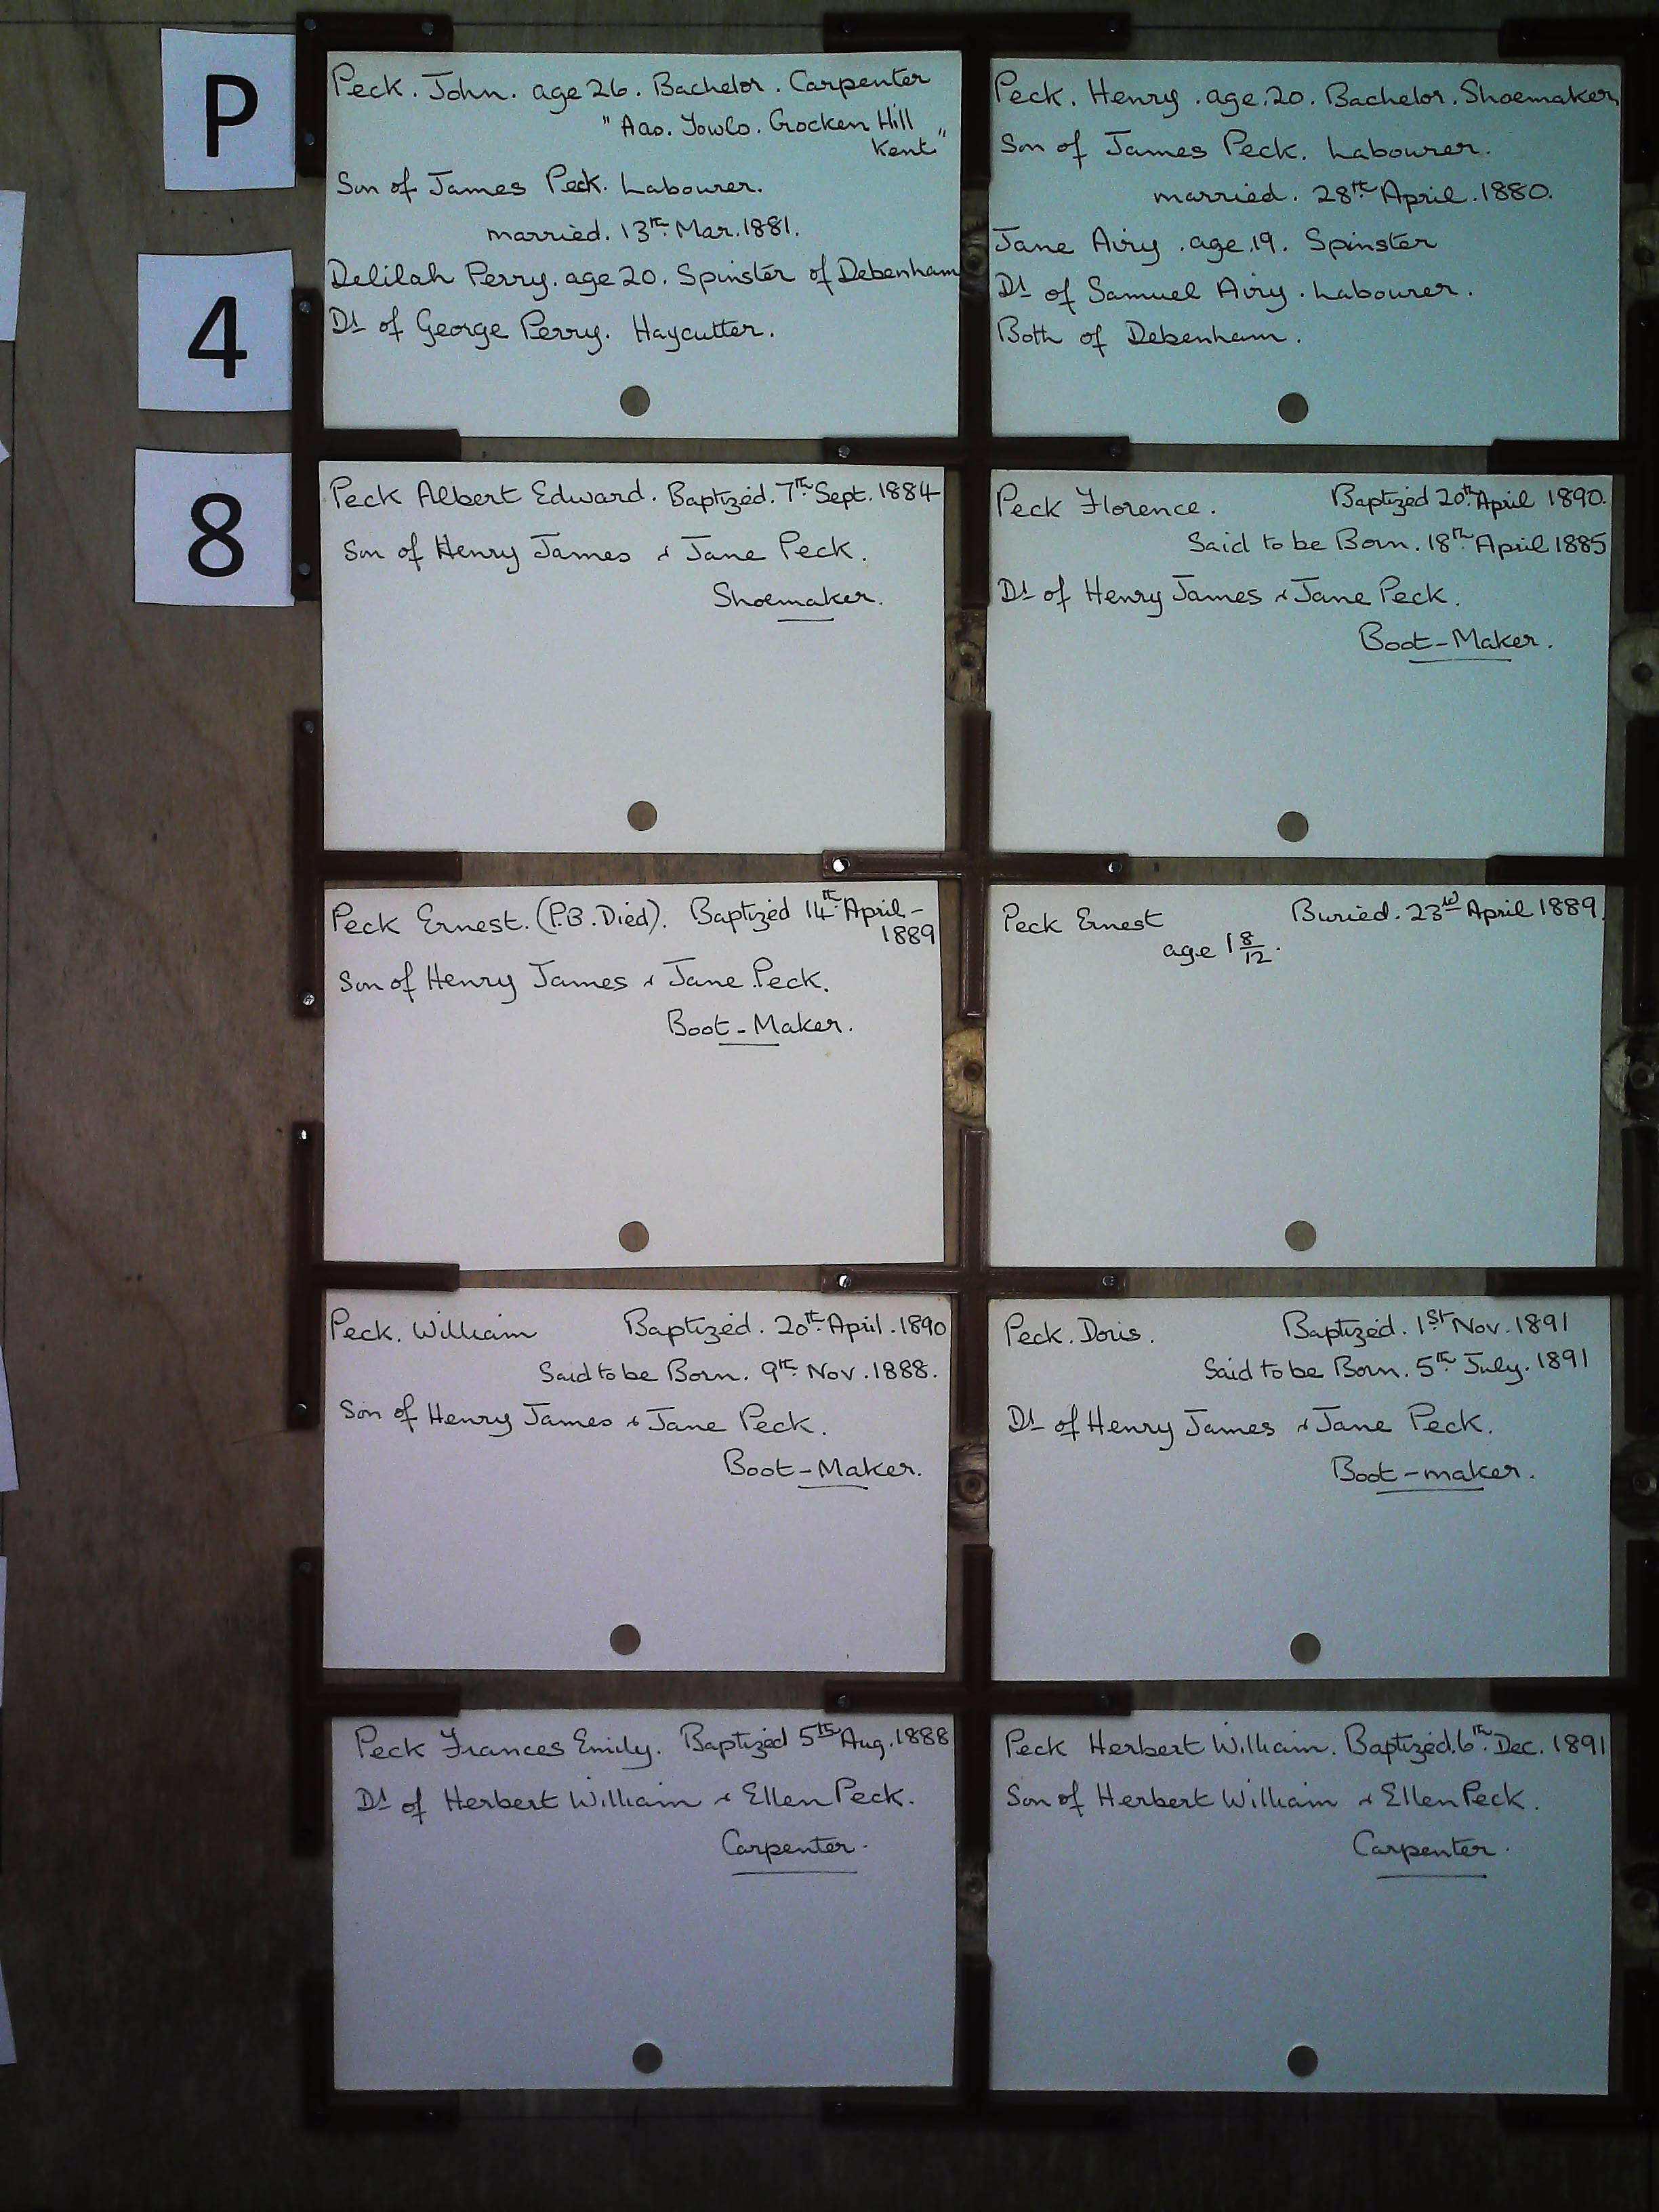 P
4
8
Peck. John. age 26. Bachelor. Carpenter
Crocken Hill
Kent"
Son of James Peck. Labourer.
married. 13th Mar. 1881.
Delilah Perry. age 20. Spinster of Debenham
Dt of George Perry. Haycutter.
Peck. Henry. age. 20. Bachelor. Shoemaker.
Son of James Peck. Labourer.
married. 28th April. 1880.
Jane Airy. age. 19. Spinster
Dt of Samuel Airy. Labourer.
Both of Debenham.
Peck Albert Edward. Baptized. 7th Sept. 1884
Son of Henry James & Jane Peck.
Shoemaker.
Peck Florence. Baptized 20th April 1890.
Said to be Born. 18th April 1885
Dt of Henry James & Jane Peck.
Boot-Maker.
Peck Ernest. (P.B. Died). Baptized 14th April-
1889
Son of Henry James & Jane Peck.
Boot-Maker.
Peck Ernest Buried. 23rd April 1889.
age 1 8/12.
Peck. William Baptized. 20th April. 1890
Said to be Born. 9th Nov. 1888.
Son of Henry James & Jane Peck.
Boot-Maker.
Peck. Doris. Baptized. 1st Nov. 1891
Said to be Born. 5th July. 1891
Dt of Henry James & Jane Peck.
Boot-maker.
Peck Frances Emily. Baptized 5th Aug. 1888
Dt of Herbert William & Ellen Peck.
Carpenter.
Peck Herbert William. Baptized. 6th Dec. 1891
Son of Herbert William & Ellen Peck.
Carpenter.